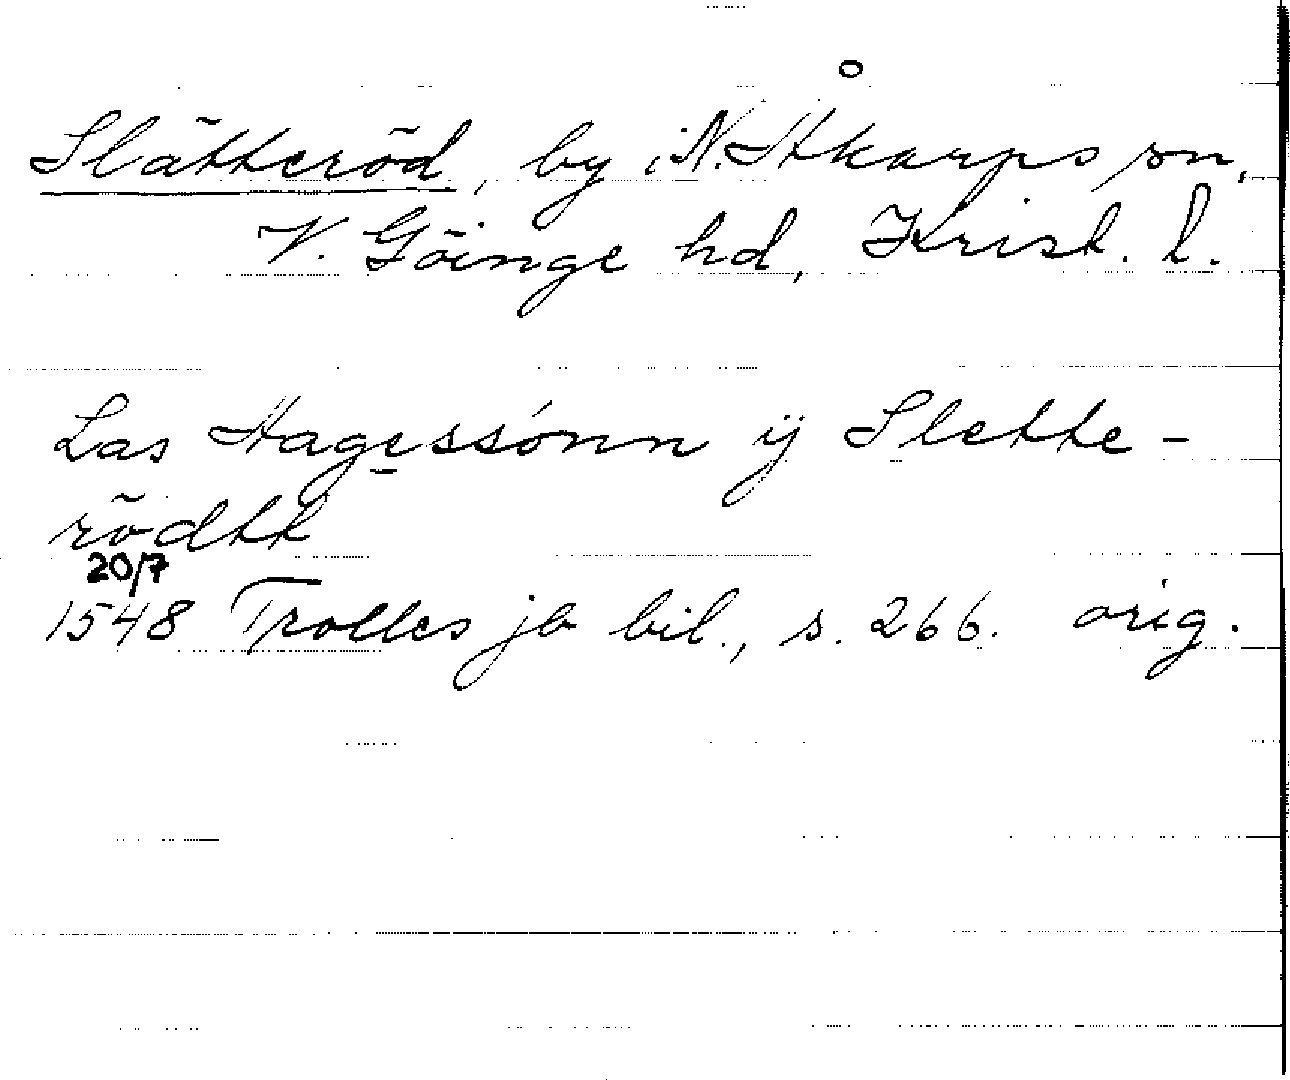 Slätteröd, by i N. Åkarps sn,
V. Göinge hd, Krist. l.
Las Hagessónn ÿ Slette-
rödtt
20/7
1548 Trolles jb bil., s. 266. orig.